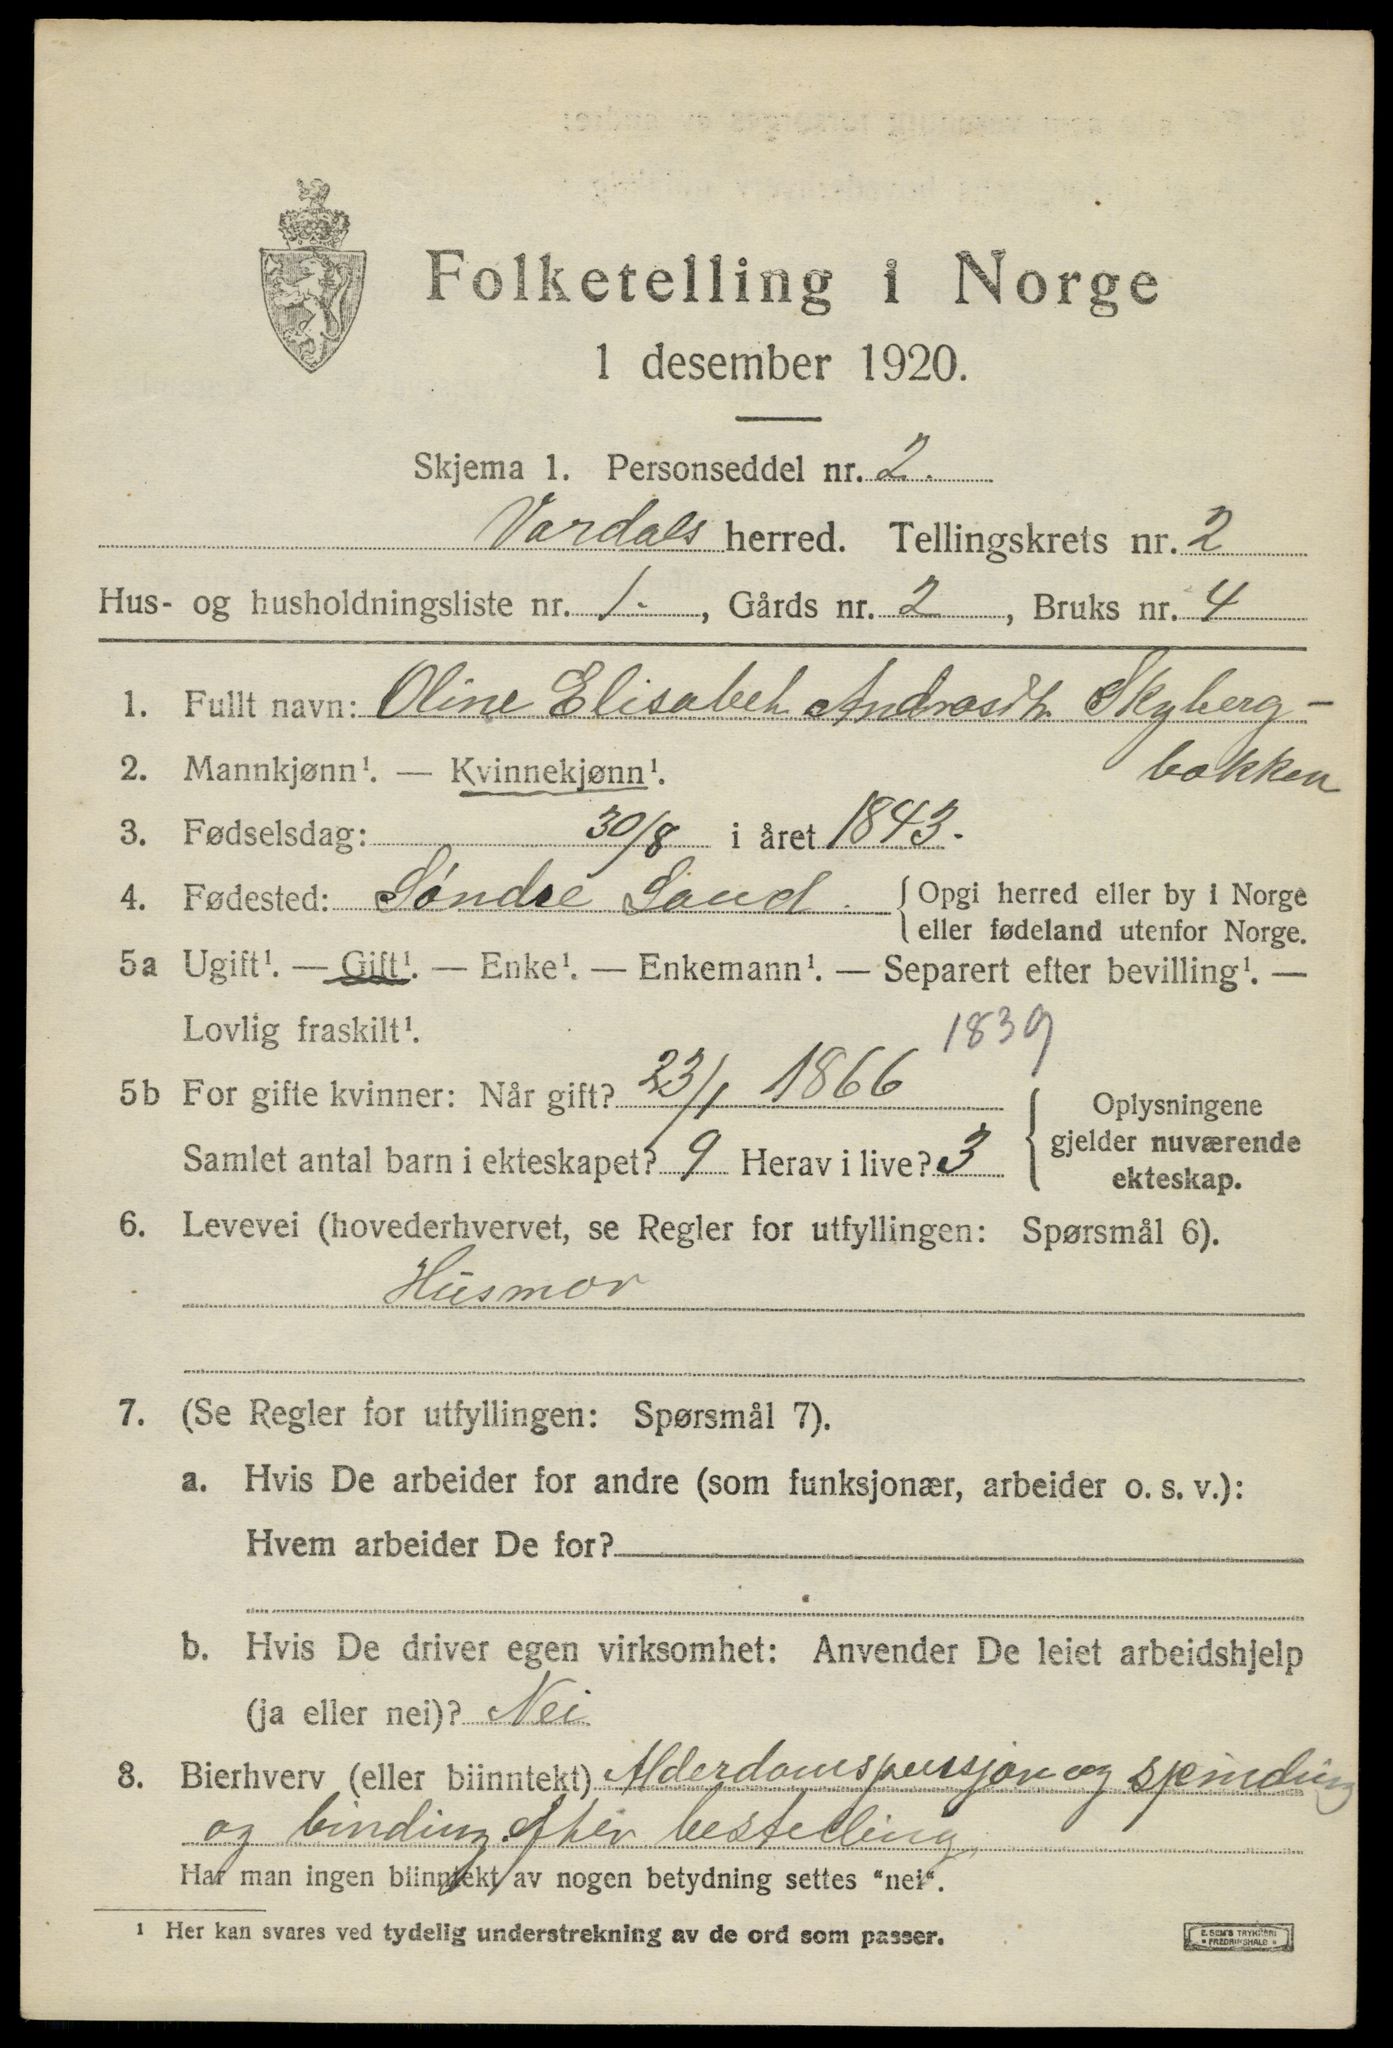 Folketelling i Norge
1 desember 1920.
Skjema 1. Personseddel nr. 2.
Vardals herred. Tellingskrets nr. 2
Hus- og husholdningsliste nr. 1-, Gårds nr. 2, Bruks nr. 4
1. Fullt navn: Oline Elisabet Skyberg-
bakken
2. Mannkjønn¹. — Kvinnekjønn¹.
3. Fødselsdag: 30/8 i året 1843.
4. Fødested: Søndre Land. {Opgi herred eller by i Norge
eller fødeland utenfor Norge.
5a Ugift¹. — Gift¹. — Enke¹. — Enkemann¹. — Separert efter bevilling¹. —
Lovlig fraskilt¹.
1839
5b For gifte kvinner: Når gift? 23/1 1866
Samlet antal barn i ekteskapet? 9 Herav i live? 3
Oplysningene
gjelder nuværende
ekteskap.
6. Levevei (hovederhvervet, se Regler for utfyllingen: Spørsmål 6).
Husmor
7. (Se Regler for utfyllingen: Spørsmål 7).
a. Hvis De arbeider for andre (som funksjonær, arbeider o. s. v.):
Hvem arbeider De for?
b. Hvis De driver egen virksomhet: Anvender De leiet arbeidshjelp
(ja eller nei)? Nei
8. Bierhverv (eller biinntekt) Alderdomspensjon og spinding
og binding efter bestelling
Har man ingen biinntekt av nogen betydning settes "nei".
¹ Her kan svares ved tydelig understrekning av de ord som passer.
E. SEM'S TRYKKERI
FREDRIKSHALD